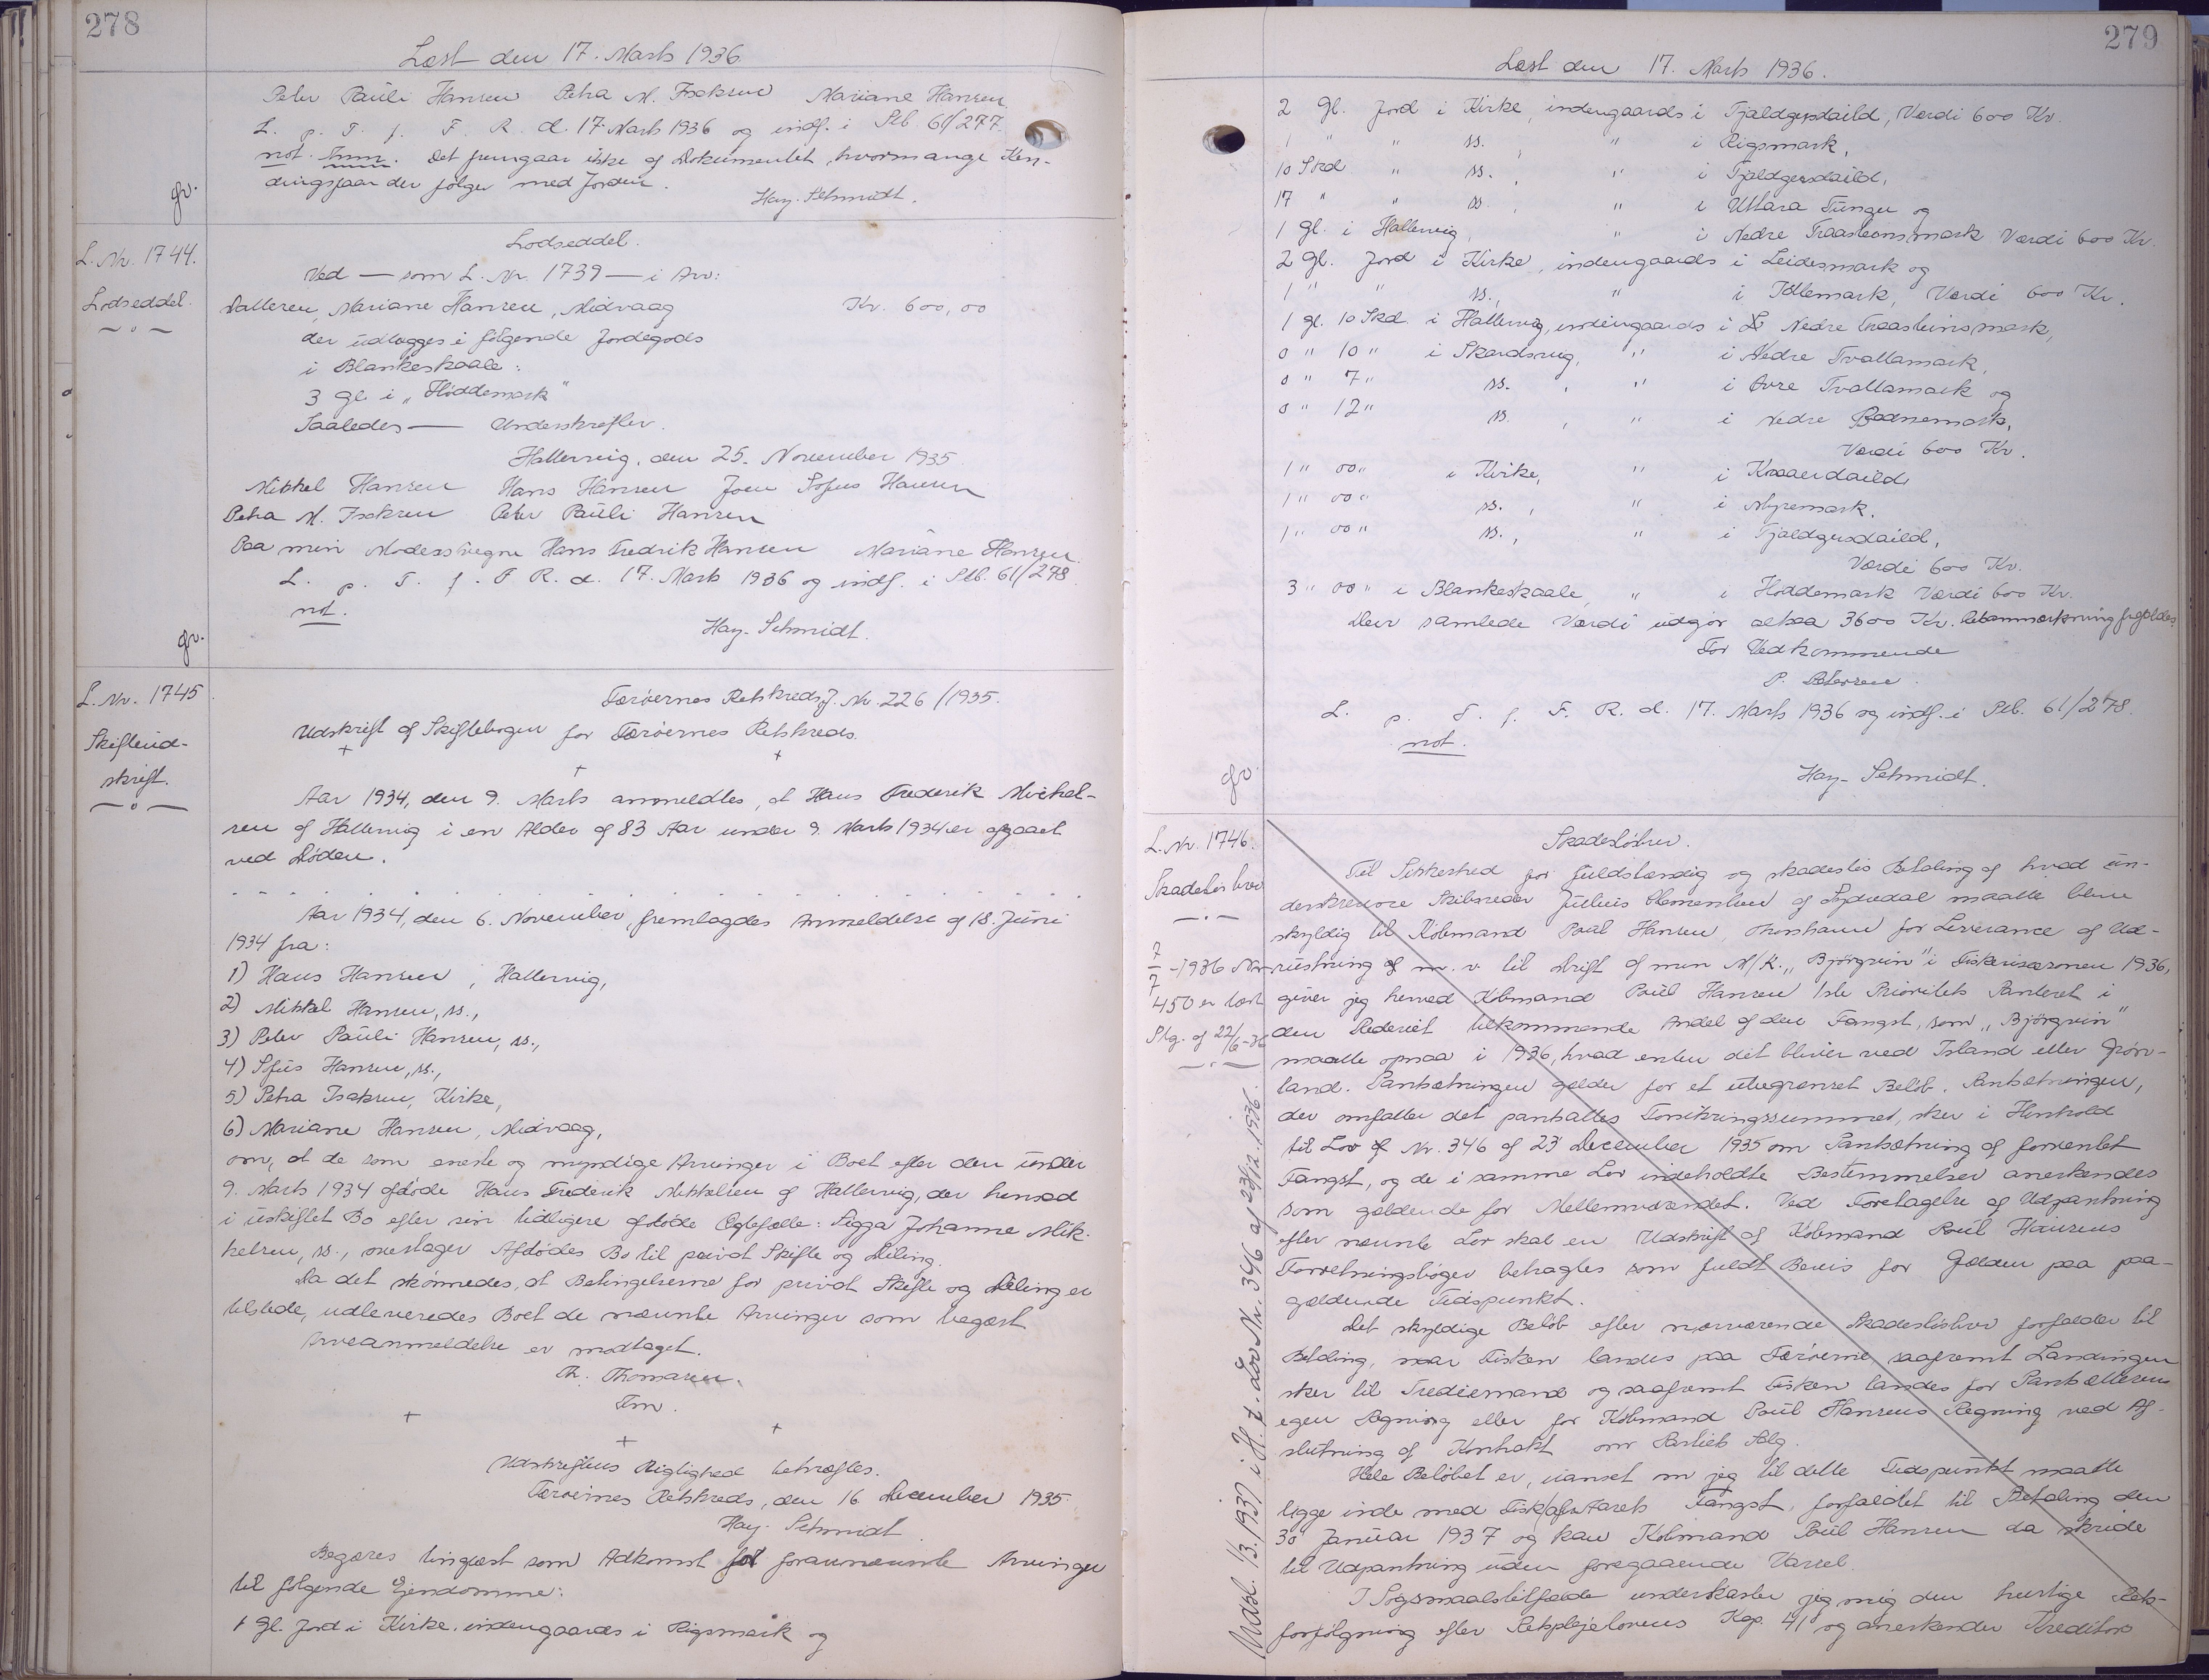 278
Læst den 17. Marts 1936.
Peter Pauli Hansen Petra M. Isaksen Mariane Hansen
L. p. T. f. F. R. d. 17. Marts 1936 og indf. i Ptb. 61/277.
not. Anm. Det fremgaar ikke af Dokumentet, hvormange Ken-
dingsfaar der følger med Jorden.
gr.
Hay-Schmidt.
L. Nr. 1744.
Lodseddel.
Lodseddel.
Ved — som L. Nr. 1739 — i Arv:
Datteren, Mariane Hansen, Midvaag Kr. 600,00
der udlægges i følgende Jordegods
i Blankeskaale:
3 gl. i „Høddemark"
Saaledes — Underskrifter.
Hallervig, den 25. November 1935
Mikkel Hansen Hans Hansen Joen Sofus Hansen
Petra M. Isaksen Peter Pauli Hansen
Paa min Moders Vegne Hans Fredrik Hansen Mariane Hansen
L. p. T. f. F. R. d. 17. Marts 1936 og indf. i Ptb. 61/278
not.
gr.
Hay-Schmidt.
L. Nr. 1745
Skifteud-
skrift.
Færøernes Retskreds J. Nr. 226/1935.
Udskrift af Skiftebogen for Færøernes Retskreds.
+ + +
Aar 1934, den 9. Marts anmeldtes, at Hans Frederik Mickel-
sen af Hallervig i en Alder af 83 Aar under 9. Marts 1934 er afgaaet
ved Døden.
. . . . . . . . . . . . . . . . . . . .
Aar 1934, den 6. November, fremlagdes Anmeldelse af 18. Juni
1934 fra:
1) Hans Hansen, Hallervig,
2) Mikkel Hansen, ss.,
3) Peter Pauli Hansen, ss.,
4) Sofus Hansen, ss.,
5) Petra Isaksen, Kirke,
6) Mariane Hansen, Midvaag,
om, at de som eneste og myndige Arvinger i Boet efter den under
9. Marts 1934 afdøde Hans Frederik Mikkelsen af Hallervig, der hensad
i uskiftet Bo efter sin tidligere afdøde Ægtefælle: Sigga Johanne Mik-
kelsen, ss., overtager Afdødes Bo til privat Skifte og Deling.
Da det skønnedes, at Betingelserne for privat Skifte og Deling er
tilstede, udleveredes Boet de nævnte Arvinger som begært
Arveanmeldelse er modtaget.
Th. Thomasen.
Fm.
+ + +
Udskriftens Rigtighed bekræftes.
Færøernes Retskreds, den 16 December 1935
Hay-Schmidt
Begæres tinglæst som Adkomst for forannævnte Arvinger
til følgende Ejendomme:
1 gl. Jord i Kirke, indengaards i Rigsmark og
279
Læst den 17. Marts 1936.
2 gl. Jord i Kirke, indengaards i Tjaldgersdaild, Værdi 600 Kr.
1 " " ss. , " i Rigsmark,
10 Skd " ss. , " i Tjaldgersdaild,
17 " " ss. , " i Uttara Tungu og
1 gl. i Hallervig, " i Nedre Traasteinsmark Værdi 600 Kr.
2 gl. Jord i Kirke, indengaards i Leidesmark og
1 " " ss., " i Idlemark, Værdi 600 Kr.
1 gl. 10 Skd. i Hallervig, indengaards i Nedre Traasteinsmark,
0 " 10 " i Skardsvig, " i Nedre Tvattamark,
0 " 7 " ss. , " i Øvre Tvattamark og
0 " 12 " ss. , " i Nedre Bødnemark,
Værdi 600 Kr.
1 " 00 " i Kirke, " i Kraaerdaild,
1 " 00 " ss. , " i Myremark,
1 " 00 " ss., " i Tjaldgersdaild,
Værdi 600 Kr.
3 " 00 " i Blankeskaale, " i Høddemark Værdi 600 Kr.
Den samlede Værdi udgør altsaa 3600 Kr. Retsanmærkning frafaldes.
For Vedkommende
P. Petersen.
L. p. T. f. F. R. d. 17. Marts 1936 og indf. i Ptb. 61/278.
not.
gr.
Hay-Schmidt.
L. Nr. 1746.
Skadesløsbrev
7/7 - 1936 Nr.
450 er læst
Skg. af 22/6-36
Skadesløsbrev.
Til Sikkerhed for fuldstændig og skadesløs Betaling af hvad un-
derskrevne Skibsreder Julius Clementsen af Sydredal maatte blive
skyldig til Købmand Poul Hansen, Thorshavn for Leverance af Ud-
rustning m. v. til Drift af min M/K. „Björgvin" i Fiskerisæsonen 1936,
giver jeg herved Købmand Poul Hansen 1ste Prioritets Panteret i
den Rederiet tilkommende Andel af den Fangst, som „Björgvin"
maatte opnaa i 1936, hvad enten det bliver ved Island eller Grøn-
land. Pantsætningen gælder for et ubegrænset Beløb. Pantsætningen,
der omfatter det pantsattes Forsikringssummer, sker i Henhold
til Lov Nr. 346 af 23 December 1935 om Pantsætning af forventet
Fangst, og de i samme Lov indeholdte Bestemmelser anerkendes
som gældende for Mellemværendet. Ved Foretagelse af Udpantning
efter nævnte Lov skal en Udskrift af Købmand Poul Hansens
Forretningsbøger betragtes som fuldt Bevis for Gælden paa paa-
gældende Tidspunkt.
Det skyldige Beløb efter nærværende Skadesløsbrev forfalder til
Betaling, naar Fisken landes paa Færøerne saafremt Landingen
sker til Trediemand og saafremt Fisken landes for Pantsætterens
egen Regning eller for Købmand Poul Hansens Regning ved Af-
slutning af Kontrakt om Partiets Salg.
Hele Beløbet er, uanset om jeg til dette Tidspunkt maatte
ligge inde med Fisk af Aarets Fangst, forfaldet til Betaling den
30 Januar 1937 og kan Købmand Poul Hansen da skride
til Udpantning uden foregaaende Varsel.
I Søgsmaalstilfælde underkaster jeg mig den hurtige Rets-
forfølgning efter Retsplejelovens Kap. 41 og anerkender Kreditors
Udsl. 1/3 1937 i H. t. Lov Nr. 346 af 23/12 1936.